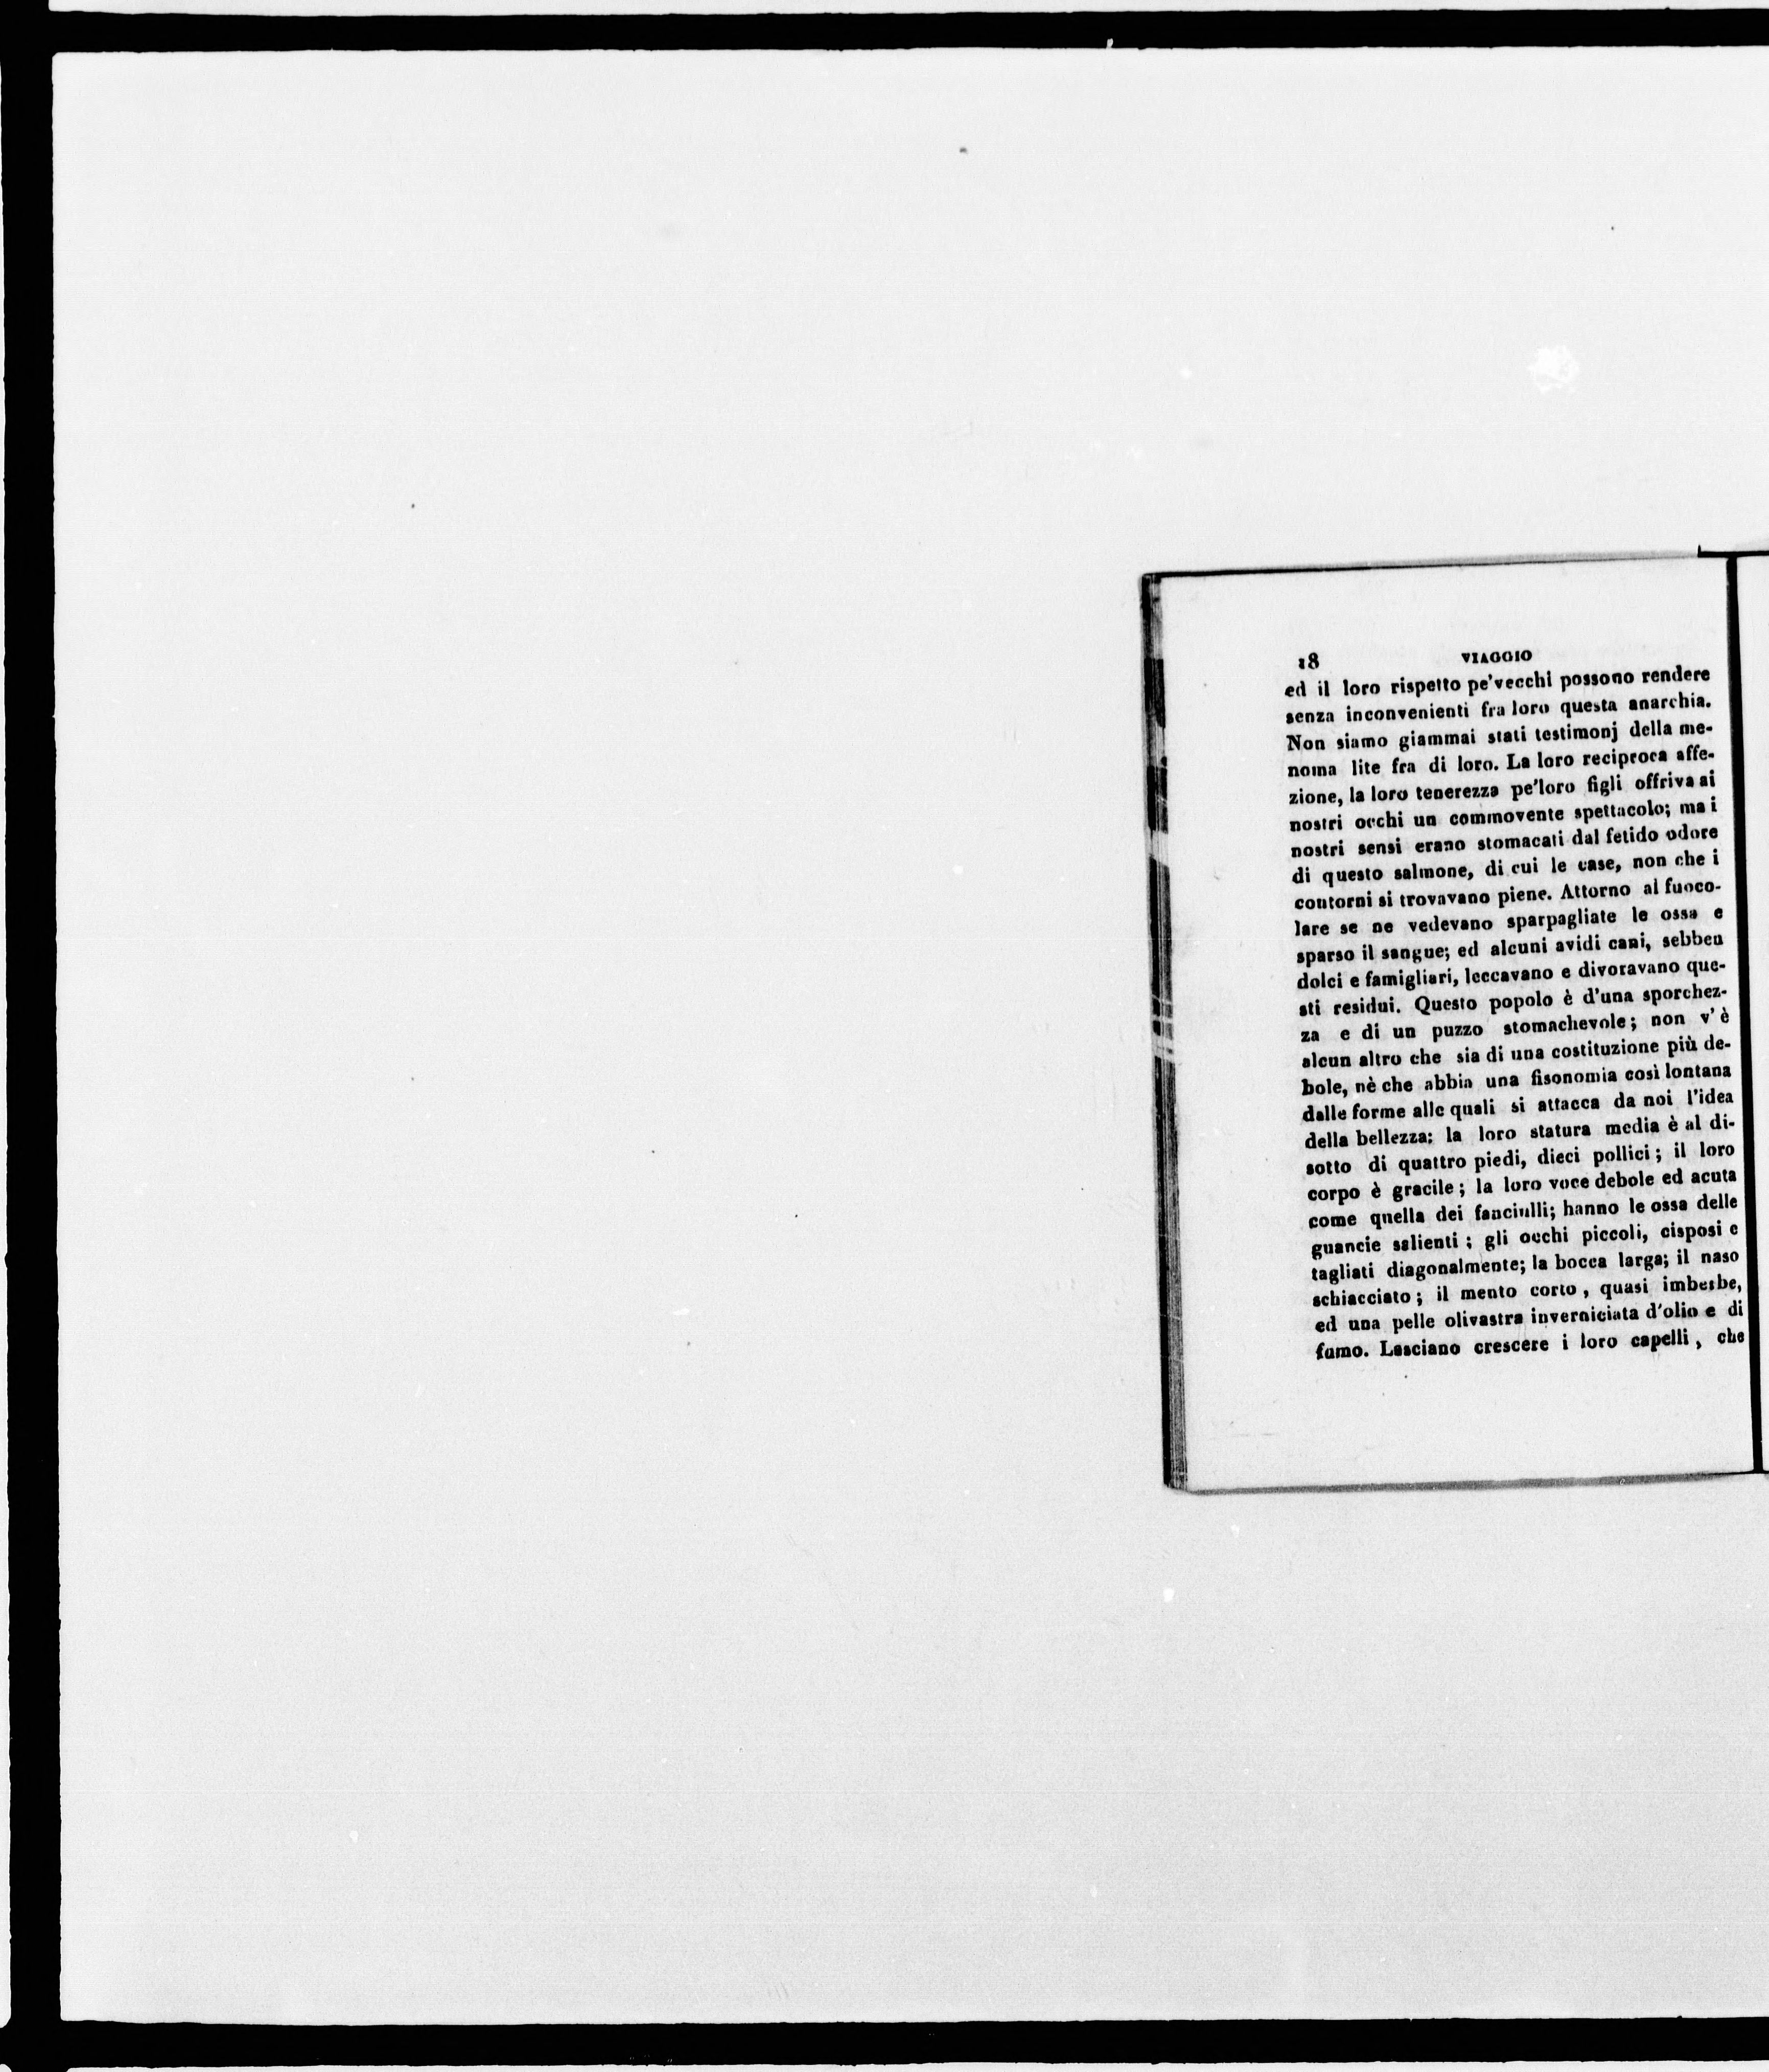 18 VIAGGIO
ed il loro rispetto pe'vecchi possono rendere
senza inconvenienti fra loro questa anarchia.
Non siamo giammai stati testimonj della me-
noma lite fra di loro. La loro reciproca affe-
zione, la loro tenerezza pe'loro figli offriva ai
nostri occhi un commovente spettacolo; ma i
nostri sensi erano stomacati dal fetido odore
di questo salmone, di cui le case, non che i
contorni si trovavano piene. Attorno al fuoco-
lare se ne vedevano sparpagliate le ossa e
sparso il sangue; ed alcuni avidi cani, sebben
dolci e famigliari, leccavano e divoravano que-
sti residui. Questo popolo è d'una sporchez-
za e di un puzzo stomachevole; non v'è
alcun altro che sia di una costituzione più de-
bole, nè che abbia una fisonomia così lontana
dalle forme alle quali si attacca da noi l'idea
della bellezza: la loro statura media è al di-
sotto di quattro piedi, dieci pollici; il loro
corpo è gracile; la loro voce debole ed acuta
come quella dei fanciulli; hanno le ossa delle
guancie salienti; gli occhi piccoli, cisposi e
tagliati diagonalmente; la bocca larga; il naso
schiacciato; il mento corto, quasi imberbe,
ed una pelle olivastra inverniciata d'olio e di
fumo. Lasciano crescere i loro capelli, che